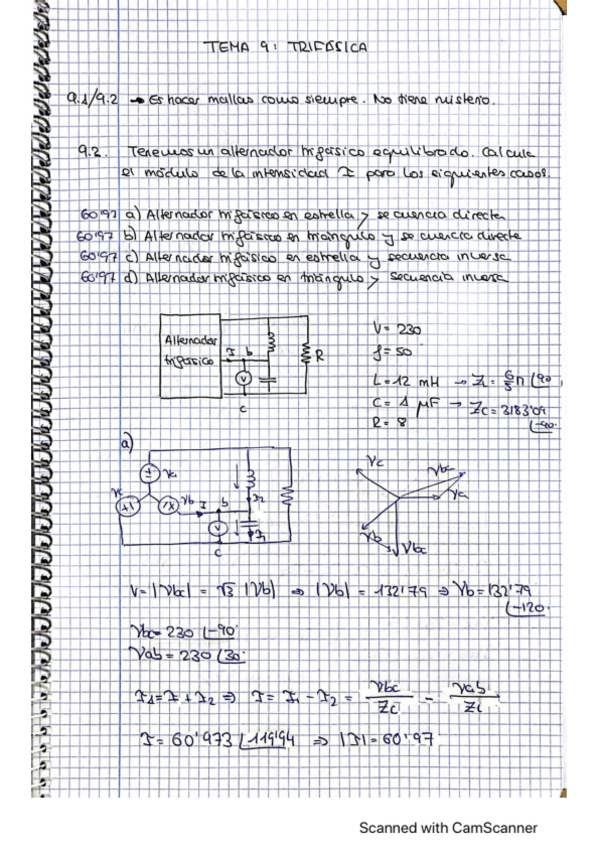 TEMA 9: TRIFÁSICA
9.1/9.2 → Es hacer mallas como siempre. No tiene misterio.
9.2. Tenemos un alternador trifásico equilibrado. Calcula
el módulo de la intensidad I para los siguientes casos.
60'97 a) Alternador trifásico en estrella y secuencia directa
60'97 b) Alternador trifásico en triángulo y secuencia directa
60'97 c) Alternador trifásico en estrella y secuencia inversa
60'97 d) Alternador trifásico en triángulo y secuencia inversa
Alternador
trifásico
I b
V
R
c
V = 230
f = 50
L = 12 mH → ZL = 6/5 π ∠90
C = 1 μF → ZC = 3183'09 ∠-90.
R = 8
a)
Va
Vc
Vb I b
I2
V
I1
c
Vc
Va
Vb
Vbc
V = |Vbc| = √3 |Vb| ⇒ |Vb| = 132'79 ⇒ Vb = 132'79 ∠-120.
Vbc = 230 ∠-90
Vab = 230 ∠30
I1 = I + I2 ⇒ I = I1 - I2 = Vbc/Zc - Vab/ZL
I = 60'973 ∠119'94 ⇒ |I| = 60'97
Scanned with CamScanner